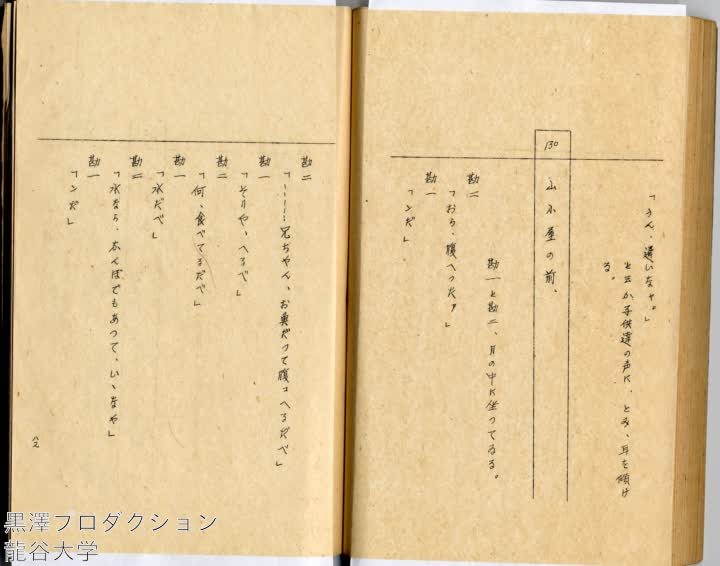 「うん、遠いなャ。」
と云ふ子供達の声に、とき、耳を傾け
る。
130
山小屋の前。
勘一と勘二、月の中に坐つてゐる。
勘二
「おら、腹へつたァ」
勘一
「ンだ」
勘二
「……兄ちやん、お馬だつて腹コへるだべ」
勘一
「そりや、へるべ」
勘二
「何、食べてるだべ」
勘一
「水だべ」
勘二
「水なら、なんぼでもあつて、いゝなや」
勘一
「ンだ」
黒澤プロダクション
龍谷大学